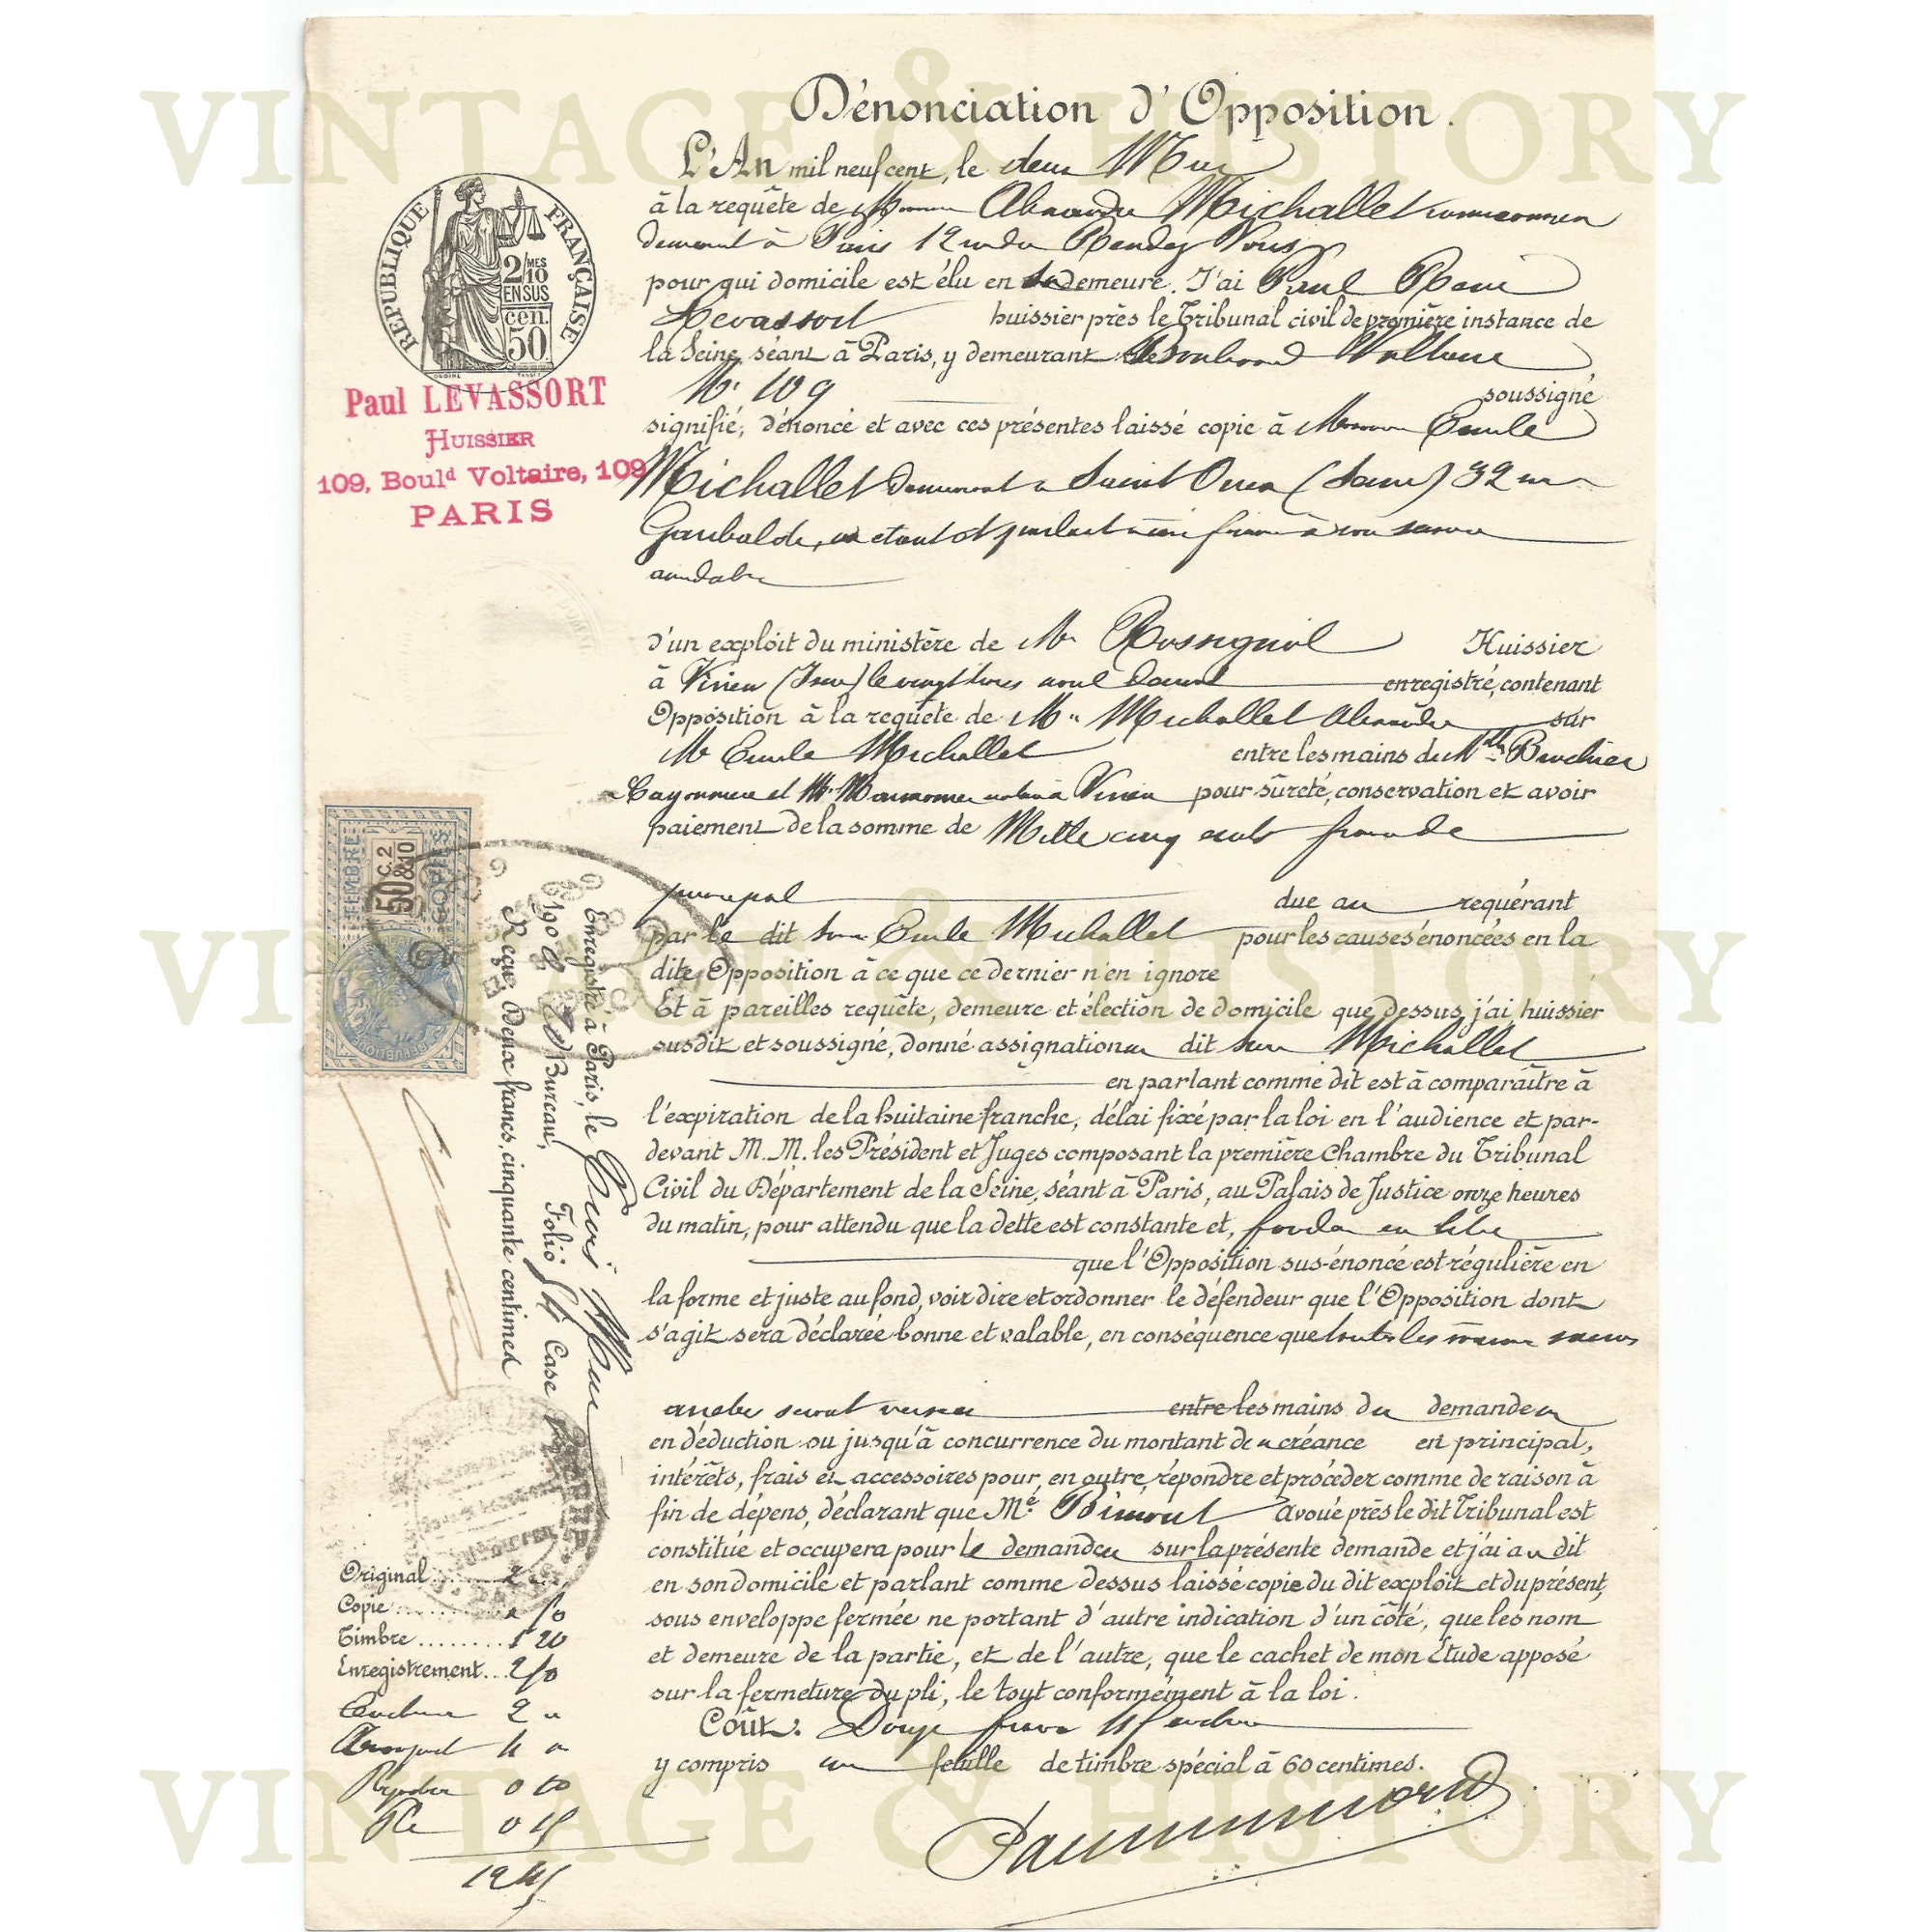 VINTAGE & HISTORY
Dénonciation d'Opposition.
L'An mil neuf cent, le deux Mai
à la requête de Monsieur Alexandre Michallet
demeurant à Paris 12 rue du Rendez Vous
pour qui domicile est élu en sa demeure. J'ai Paul
Levassort huissier près le Tribunal civil de première instance de
la Seine, séant à Paris, y demeurant Boulevard Voltaire
N° 109 soussigné
signifié, dénoncé et avec ces présentes laissé copie à Monsieur Emile
Michallet demeurant à Saint Ouen (Seine) 32 rue
Garibaldi, en étant et parlant à
REPUBLIQUE FRANÇAISE
2/10 MES EN SUS
50 cen.
Paul LEVASSORT
HUISSIER
109, Bould Voltaire, 109
PARIS
d'un exploit du ministère de Me Rossignol Huissier
à Virieu (Isère) le vingt avril dernier enregistré, contenant
Opposition à la requête de Mr Michallet Alexandre sur
Mr Emile Michallet entre les mains de
et Me notaire à Virieu pour sûreté, conservation et avoir
paiement de la somme de Mille cinq cents francs de
principal due au requérant
par le dit sieur Emile Michallet pour les causes énoncées en la
dite Opposition à ce que ce dernier n'en ignore
Et à pareilles requête, demeure et élection de domicile que dessus, j'ai, huissier
susdit et soussigné, donné assignation au dit sieur Michallet
en parlant comme dit est à comparaître à
l'expiration de la huitaine franche, délai fixé par la loi en l'audience et par-
devant M.M. les Président et Juges composant la première Chambre du Tribunal
Civil du Département de la Seine, séant à Paris, au Palais de Justice onze heures
du matin, pour attendu que la dette est constante et, fondée en titre
que l'Opposition sus-énoncé est régulière en
la forme et juste au fond, voir dire et ordonner le défendeur que l'Opposition dont
s'agit sera déclarée bonne et valable, en conséquence que toutes les sommes
seront versées entre les mains du demandeur
en déduction ou jusqu'à concurrence du montant de sa créance en principal,
intérêts, frais et accessoires pour, en outre, répondre et procéder comme de raison à
fin de dépens, déclarant que Me Avoué près le dit Tribunal est
constitué et occupera pour le demandeur sur la présente demande et j'ai au dit
en son domicile et parlant comme dessus laissé copie du dit exploit et du présent,
sous enveloppe fermée ne portant d'autre indication d'un côté, que les nom
et demeure de la partie, et de l'autre, que le cachet de mon Etude apposé
sur la fermeture du pli, le tout conformément à la loi.
Coût: Douze francs
y compris une feuille de timbre spécial à 60 centimes.
TIMBRE COPIES
50 C. 2 & 10
REPUBLIQUE
Enregistré à Paris, le Trois Mai
190 Bureau, Folio Case
Reçu Deux francs, cinquante centimes
Original 2
Copie 50
Timbre 1 20
Enregistrement 2 50
2
4
Répertoire 0 10
0 15
12 45
VINTAGE & HISTORY
VINTAGE & HISTORY